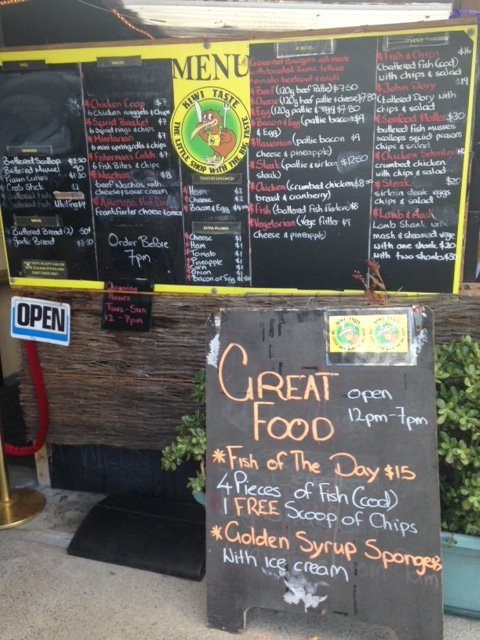 MENU
KIWI TASTE
THE LITTLE SHOP WITH THE BIG TASTE
*Chicken Coop $7
chicken nuggets & chips
*Squid Basket
6 squid rings & chips
*Minitarian
mini springrolls & chips
*Fishermans Catch
*Nachos
Order Before
7pm
Gourmet Burgers all made
*Beef (120g beef Pattie) $7.50
*Cheese (120g pattie & cheese) $7.80
*Egg (120g pattie & egg) $7.80
*Bacon & Egg (pattie bacon $9
& Egg)
*Hawaiian (pattie bacon $9
cheese & pineapple)
*Steak (pattie sirloin $12.50
steak)
*Chicken (crumbed chicken $8
breast & cranberry)
*Fish (battered Fish
*Vegetarian (Vege Pattie $9
cheese & pineapple)
Ham
Cheese
Bacon & Egg
Cheese
Ham
Tomato
Pineapple
Corn
Onion
Bacon or Egg
*Fish & Chips $16
(battered Fish (cod)
with chips & salad
*John Dory $19
(battered Dory with
chips & salad
*Seafood Platter $30
battered Fish mussels
scallops squid prawn
chips or salad
*Chicken Schnitzel
crumbed chicken
with chips & salad
*Steak $20
sirloin steak eggs
chips & salad
*Lamb & Mash
Lamb Shank with
mash & steamed vege
with one shank $20
with two shanks $30
Battered Scallop
Battered Mussel
Prawn
Crab Stick
Battered Bread (2) 50¢
Garlic Bread $3.50
Opening
Hours
Tues-Sun
12-7pm
OPEN
GREAT
FOOD
open
12pm-7pm
*Fish of The Day $15
4 Pieces of Fish (cod)
1 FREE Scoop of Chips
*Golden Syrup Sponge $8
With ice cream